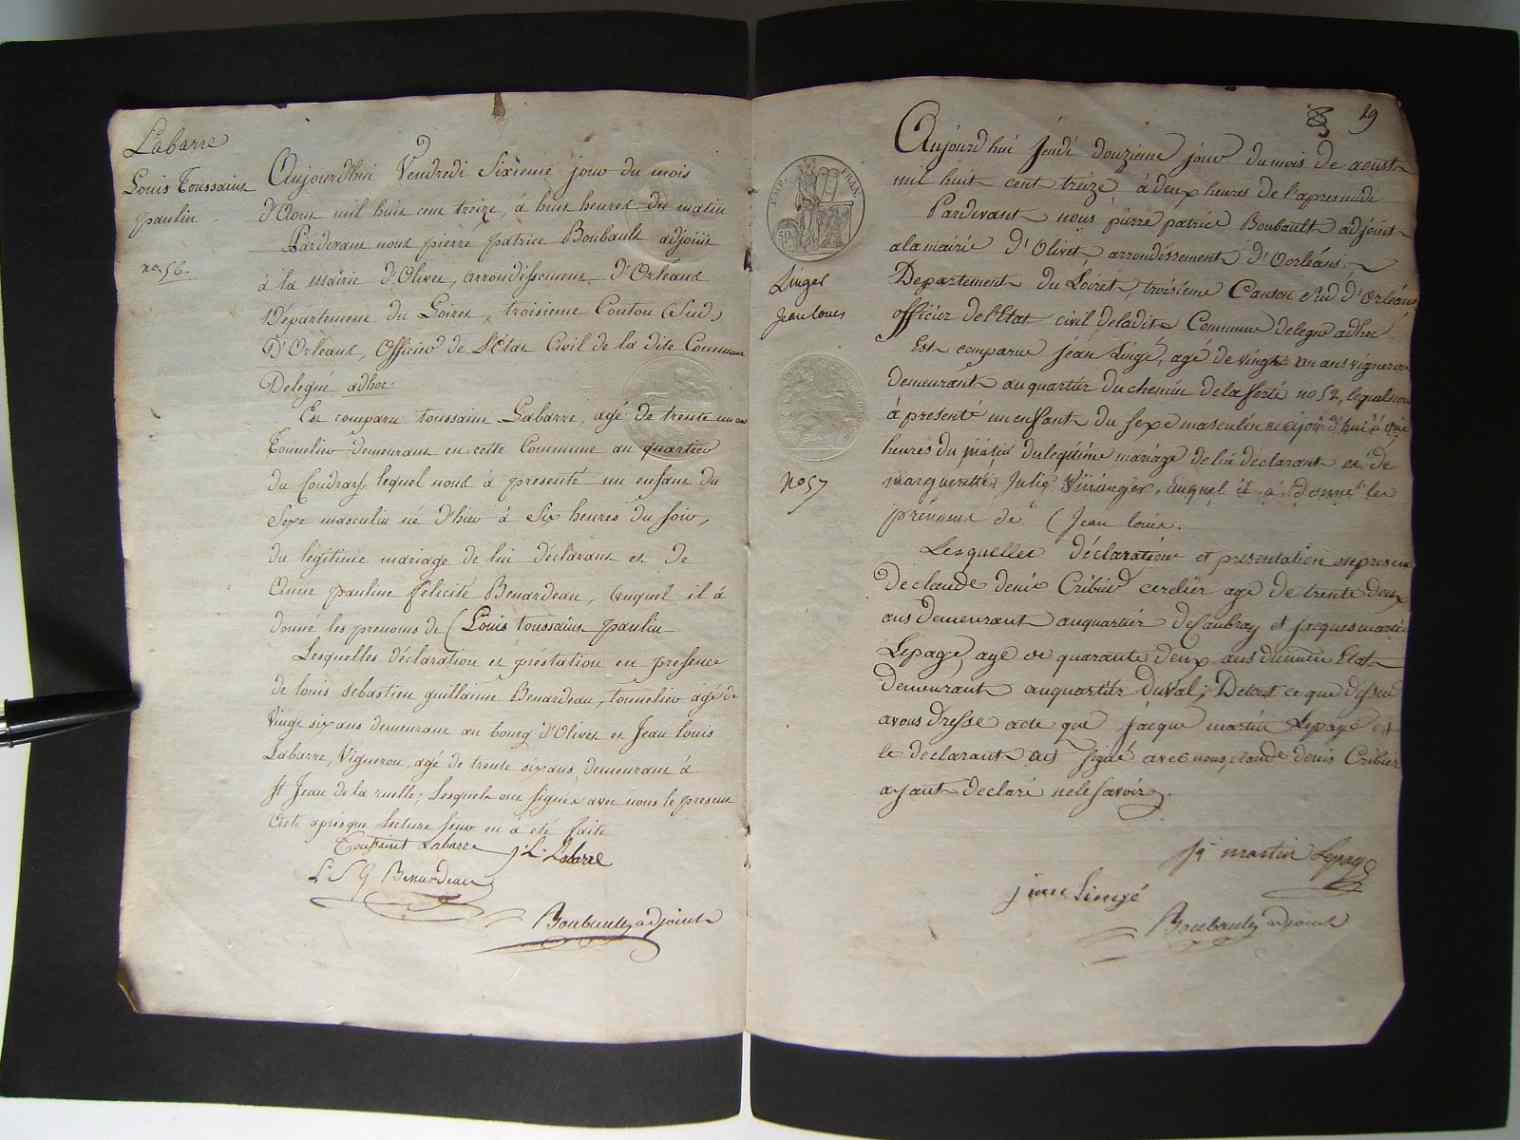 Labarre
Louis Toussaint
paulin
no. 56.
Aujourdhui Vendredi Sixieme jour du mois
D'Aout mil huit cent treize, à huit heures du matin
Pardevant nous pierre patrice Boubault adjoint
à la Mairie d'Olivet, arrondissement D'Orleans
Département du Loiret, troisieme Canton (Sud)
D'Orleans, Officier de l'Etat Civil de la dite Commune
Delegué adhoc
Est comparu toussaint Labarre, agé de trente un ans
Tonnelier demeurant en cette Commune au quartier
du Coudray lequel nous à presenté un enfant du
Sexe masculin né d'hier à Six heures du soir,
du legitime mariage de lui déclarant et de
Anne pauline félicité Benardeau, auquel il à
donné les prenoms de (Louis toussaint paulin
Lesquelles déclaration et préstation en presence
de louis sebastien guillaume Benardeau, tonnelier agé de
Vingt six ans demeurant au bourg d'Olivet et Jean louis
Labarre, Vigneron, agé de trente six ans demeurant à
St Jean de la ruelle; Lesquels ont signés avec nous le present
Acte après que lecture leur en à été faite
Toussaint Labarre J. L. Labarre
L S G Benardeau
Boubault adjoint
19
EMP. FRAN.
Lingé
Jean louis
No 57
Aujourdhui Jeudi douzieme jour du mois de aoust
mil huit cent treize à deux heures de l'apremidi
Pardevant nous pierre patrice Boubault adjoint
a la mairie d'Olivet, arrondissement d'Oorléans.
Departement du Loiret, troisieme Canton sud d'Orléans
officier de l'Etat civil de ladite Commune delegué adhoc
Est comparue jéan Lingé, agé de vingt un ans vigneron
demeurant au quartier du chemin de la ferté no 52, lequel nous
à presenté un enfant du sexe masculin né ajourd'hui à
heures du matin du legitime mariage de lui déclarant et de
marguerette Julie auquel il à donné les
prénoms de (Jean louis.
Lesquelles déclaration et presentation en presence
de claude denis Cribier cerclier agé de trente deux
ans demeurant au quartier de Caubray et jacques martin
Lepage agé de quarante deux ans du même Etat
demeurant au quartier du val; De tout ce que dessus
avons dressé acte que jacque martin Lepage et
le declarant ont signé avec nous, claude denis Cribier
ayant declaré ne le savoir.
Jq martin Lepage
jean Lingé
Boubault adjoint